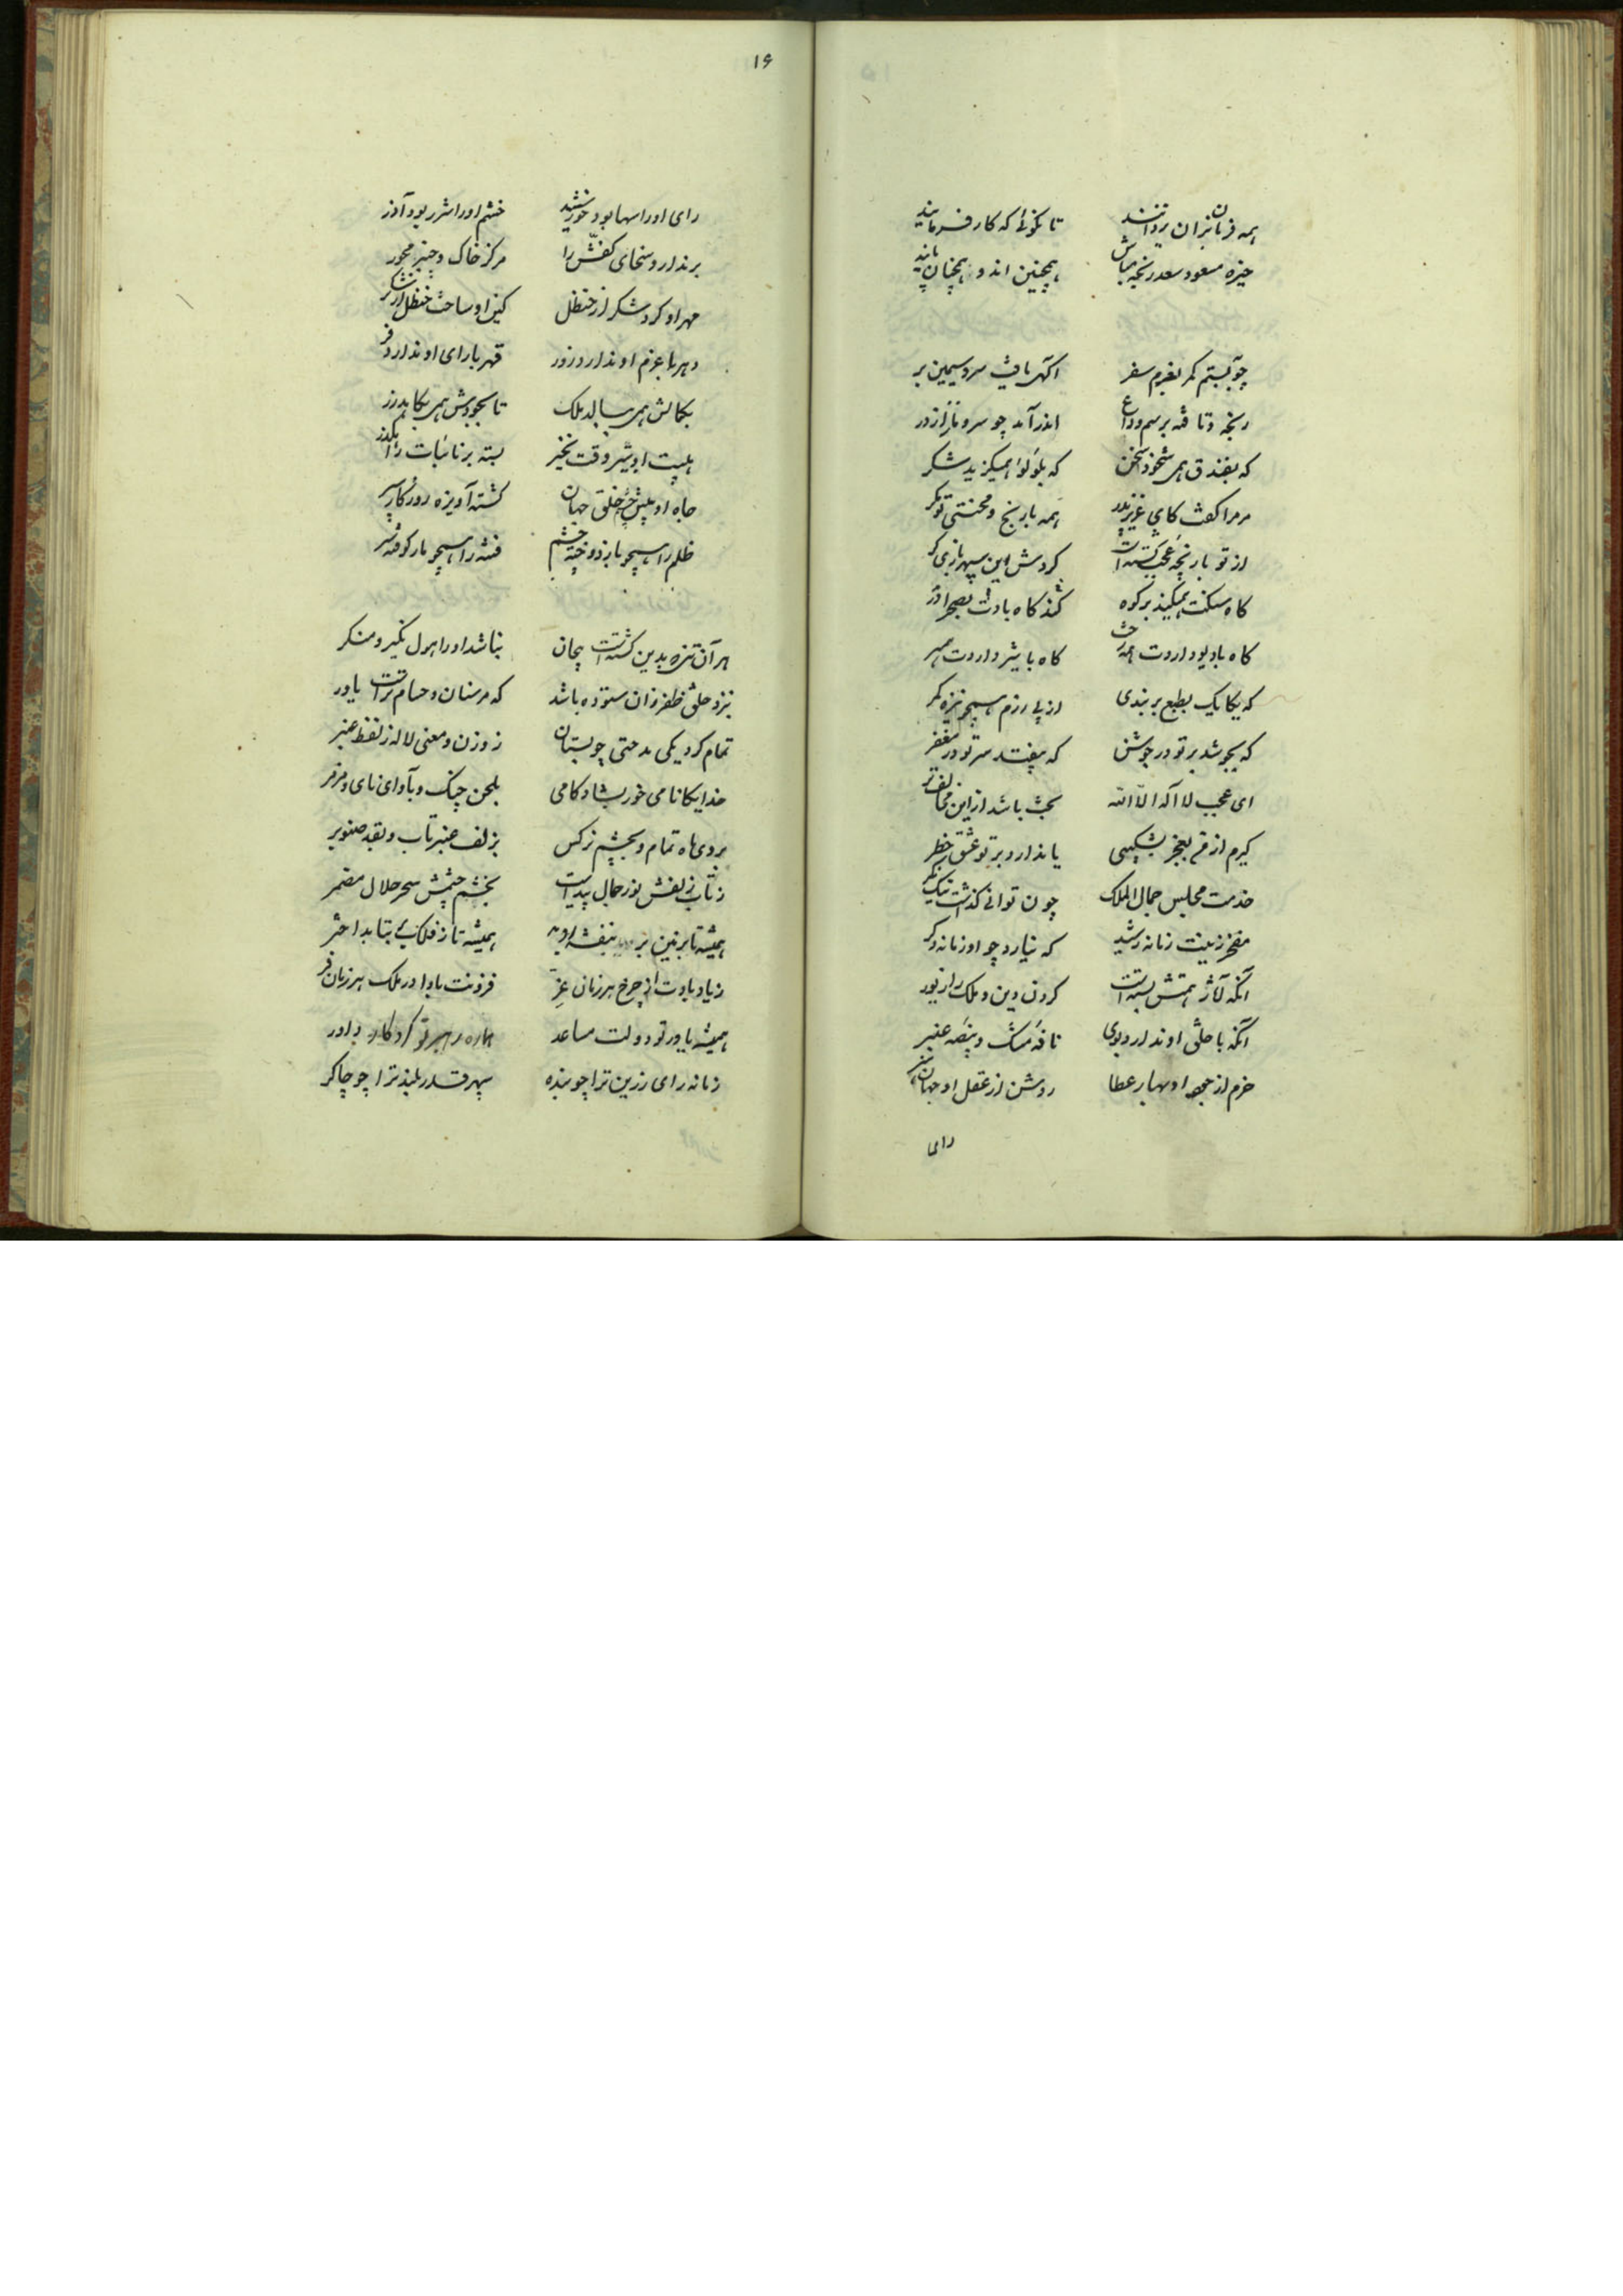 همه فرمانبران یزدانند تا نگوئی که کار فرمایند
خیره مسعود سعد رنجه مباش همچنین اند و همچنان پایند
چو ببستم کمر بعزم سفر آگهی یافت سرو سیمین بر
رنجه و تافته برسم وداع اندر آمد چو سرو ناز از در
که بفندق همی شخود سخن که بلؤلؤ همیگزید شکر
مر مرا گفت کای عزیز پدر همه با رنج و محنتی تو مگر
از تو بازیچه عجب گشته است گردش این سپهر بازی گر
گاه مسکنت میکند بر کوه گاه بادت بصحرا در
گاه با دیو داردت همه گاه با شیر داردت همسر
که یکایک بطبع بربندی از پی رزم همچو نیزه کمر
که بجوشد بر تو در جوشن که بیفتد سر تو در مغفر
ای عجب لا اله الا الله بخت باشد ازین مخالف تر
گیرم از من بعجز بشکیبی یا ندارد بر تو عشق خطر
خدمت مجلس جمال الملک چون توانی گذاشت نیک نگر
مفخر زینت زمانه رشید که نیارد چو او زمانه دگر
آنکه آثار همتش بسته است گردن دین و ملک را زیور
آنکه با خلق او ندارد بوی نافه مشک و بیضه عنبر
خرم از جود او بهار عطا روشن از عقل او جهان هنر
رای
۱۶
رای او را سها بود خورشید خشم او را شرر بود آذر
برندارد سخای کفش را مرکز خاک و چنبر محور
مهر او کرد شکر از حنظل کین او ساخت حنظل از شکر
دهر با عزم او ندارد زور قهر با رای او ندارد فر
بکمالش همی ببالد ملک تا بجودش همی بکاهد زر
هیبت او بشیر وقت نخیز بسته بر نائبات راه گذر
جاه او پیش چشم خلق جهان گشته آویزه روزگار سپر
ظلم را همچو باز دوخته چشم فتنه را همچو مار کوفته سر
هر آن تنزه بدین گشته است بجان نباشد او را هول نکیر و منکر
نزد خلق ظفر زان ستوده باشد که مر سنان و حسام تراست یاور
تمام کرد یکی مدحتی چو بستان ز وزن و معنی لاله ز لفظ عنبر
خدایگانا می خور بشادکامی بلحن چنگ و بآوای نای و مزمر
بروی ماه تمام و بچشم نرگس بزلف عنبر تاب و بقد صنوبر
ز تاب زلفش نور جمال پیداست بخشم چشمش سحر حلال مضمر
همیشه تا بزمین بر بنفشه روید همیشه تا ز فلک بر بتابد اختر
زیاد بادت از چرخ هر زمان عز فزونت بادا در ملک هر زمان فر
همیشه یاور تو دولت مساعد هماره رهبر تو کردگار داور
زمانه رای رزین ترا چو بنده سپهر قدر بلند ترا چو چاکر